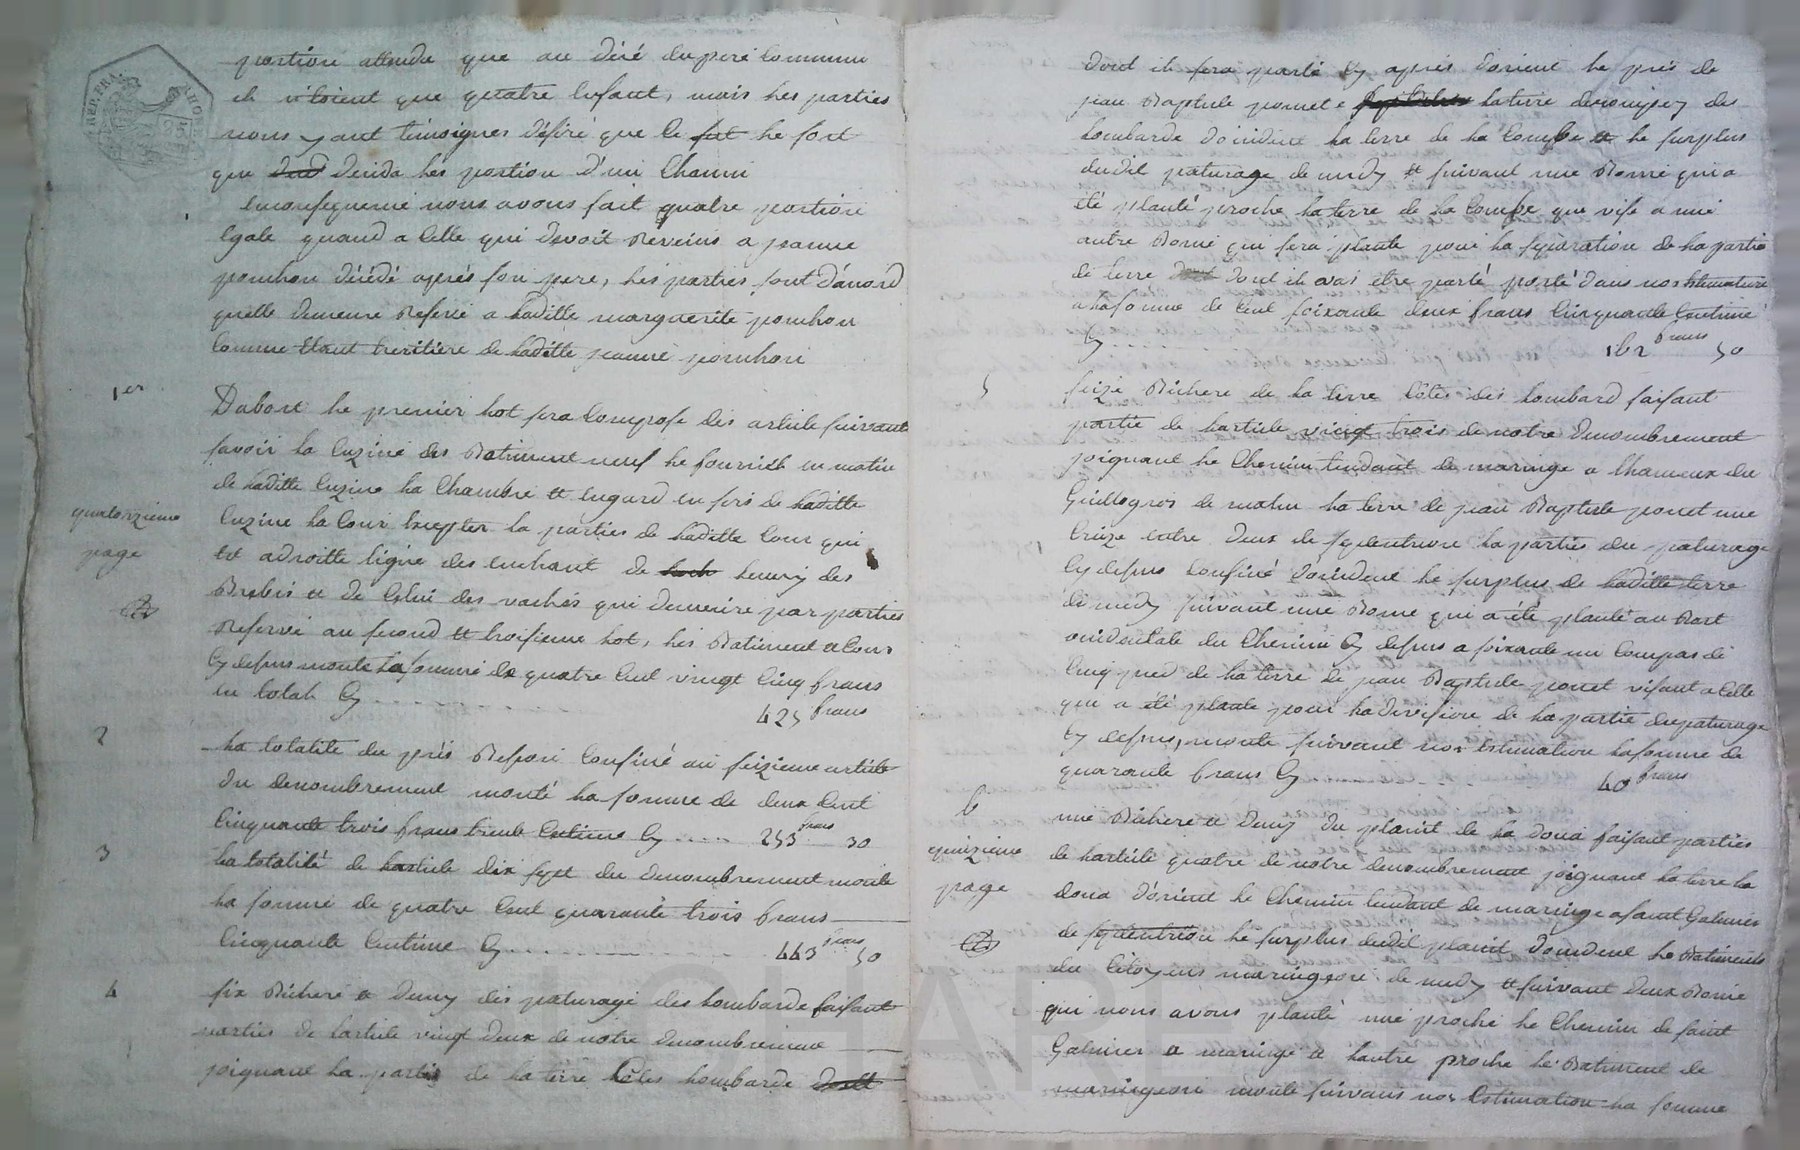 REP. FRA.
RHO
portion attendu que au décé du peré Commun
il n'étoient que quatre Enfant, mais les parties
nous yant témoignes désiré que le fut le fort
que decida les portion d'un Chacun
Enconsequence nous avons fait quatre portion
Egale quand a Celle qui devoit Reveins a jeanne
ponchon décédé aprés son pere, les parties sont d'acord
quelle demeure Reservé a laditte marguerite ponchon
Comme Etant heritiere de laditte jeanne ponchon
1er
Dabort le premier lot sera Compose des article suivant
savoir la Cuzine des Batiment neuf le fournich en matin
de laditte Cuzine la Chambre et engard en soir de laditte
quatorzieme
page
Cuzine la Cour Excepter la parties de laditte Cour qui
est adroitte ligne des enchant de hecurÿ des
Brebis et de Celui des vachés qui demeure par parties
Reservé au second et troisieme lot, les Batiment et Cour
Cy desus monte la somme de quatre Cent vingt Cinq frans
en totah Cy 425 frans
2
la totalite du prés Confiné au seizieme article
du denombrement monté la somme de deux Cent
Cinquante trois frans trente Centime Cy 253 frans 30
3
la totalité de larticle dix sept du denombrement monte
la somme de quatre Cent quarante trois frans
Cinquante Centime Cy 443 frans 50
4
six Bichere et demy des paturage des lombarde faisant
parties de larticle vingt deux de notre denombrement
joignant la partie de la terre Côtes lombarde
dont il sera parlé Cy aprés dorient le prés de
jean Baptiste ponet la terre des
lombarde doccident la terre de la Combe et le surplus
dudit paturage de midy et suivant une Borne qui a
été planté proche la terre de la Combe que vise a une
autre Borne qui sera plante pour la separation de la partie
de terre dont il vas etre parlé porté dans nos Estimation
a la somme de Cent soixante deux frans Cinquante Centime
Cy 162 frans 50
5
seize Bichere de la terre Côtes des lombard faisant
partie de larticle vingt trois de notre denombrement
joignant le Chemin tendant de maringe a lhameux du
Guillogros de matin la terre de jean Baptiste ponet une
Cruze entre deux de septentrion la parties du paturage
Cy desus Confiné doccident le surplus de laditte terre
de midy suivant une Borne qui a été planté au Bort
occidentale du Chemin Cy desus a soixante un Compas de
Cinq pied de la terre de jean Baptiste ponet visant a Celle
qui a été plante pour la division de la partie du paturage
Cy desus, monte suivant nos Estimation la somme de
quarante frans Cy 40 frans
6
une Bichere et demy du planit de la doua faisant parties
quinzieme
page
de larticle quatre de notre denombrement joignant la terre la
doua d'orient le Chemin tendant de maringe a saint Galmier
de septentrion le surplus dudit planit doccident le Batiments
du Citoyens maringeon de midy et suivant deux Borne
qui nous avons planté une proche le Chemin de saint
Galmier a maringe et lautre proche le Batiment de
maringeon monte suivans nos Estimation la somme